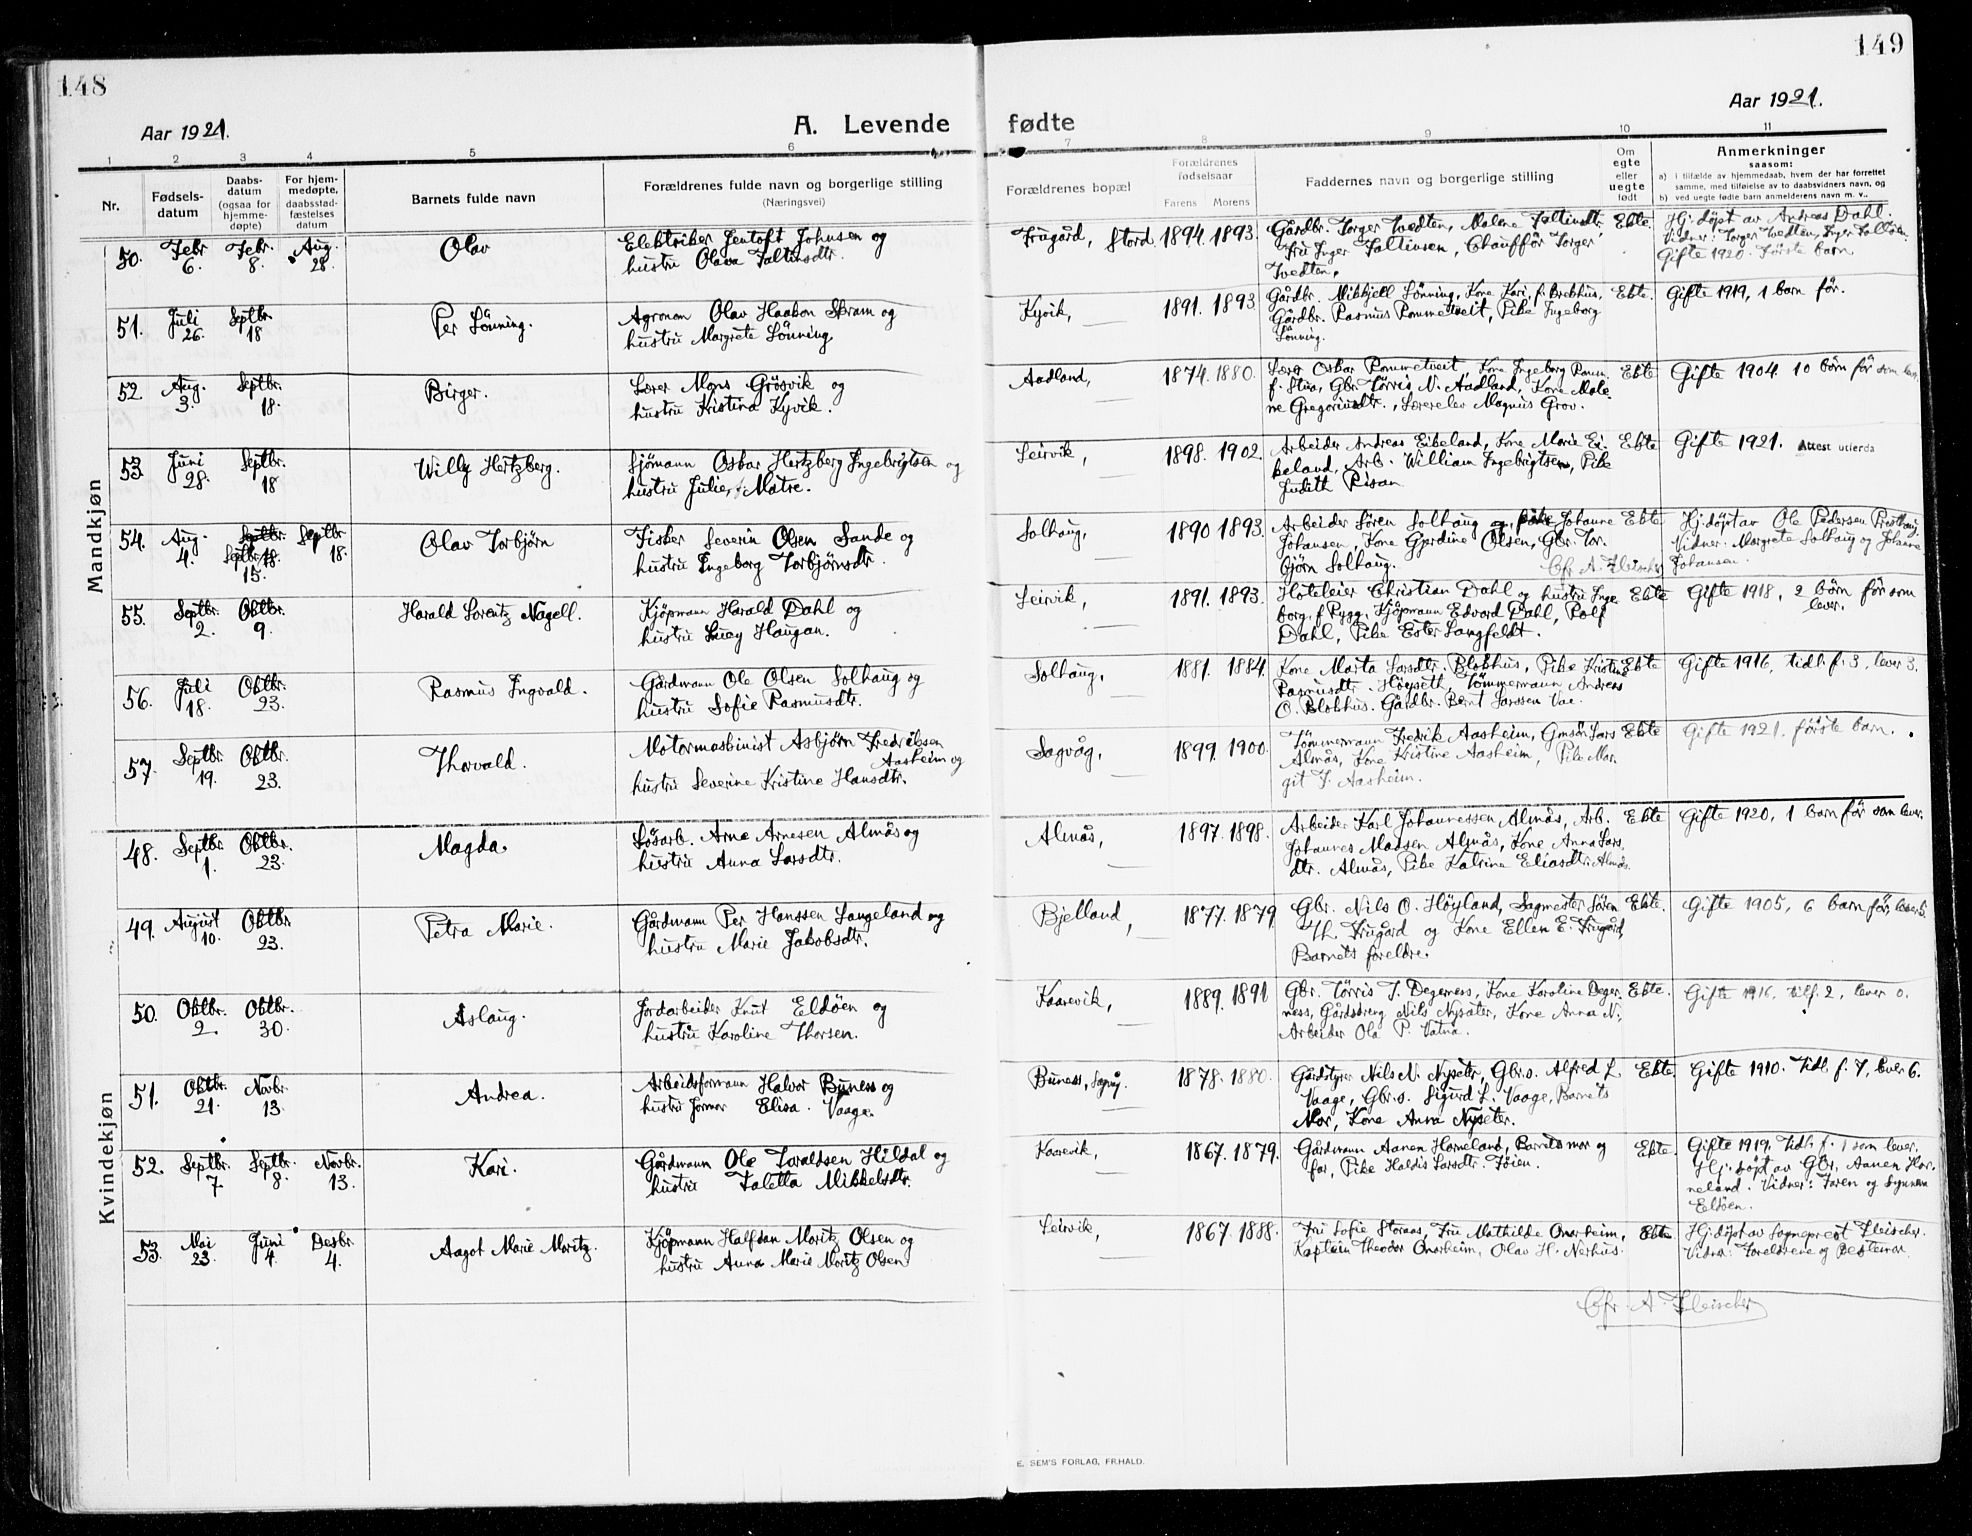 148
149
Aar 1921.
A. Levende fødte
Aar 1921.
1 2 3 4 5 6 7 8 9 10 11
Nr.
Fødsels-
datum
Daabs-
datum
(ogsaa for
hjemme-
døpte)
For hjem-
medøpte,
daabsstad-
fæstelses
datum
Barnets fulde navn
Forældrenes fulde navn og borgerlige stilling
(Næringsvei)
Forældrenes bopæl
Forældrenes
fødselsaar
Farens Morens
Faddernes navn og borgerlige stilling
Om
egte
eller
uegte
født
Anmerkninger
saasom:
a) i tilfælde av hjemmedaab, hvem der har forrettet
samme, med tilføielse av to daabsvidners navn, og
b) ved uegte fødte barn anmelderens navn m. v..
Mandkjøn
50. Febr 6. Febr. 8. Aug. 28. Olav
Elektriker Jentoft Johnsen og
hustru Olava Faltinsdtr.
Frugård, Stord. 1894. 1893.
Gårdbr. Torger Tvedten, Malene Faltinsdtr,
Fru Inger Faltinsen, Chauffør Torger
Tvedten,
Ekte.
Hj. døpt av Andreas Dahl.
Vidner: Torger Tvedten, Inger
Gifte 1920. Første barn
51. Juli 26. Septbr. 18 Per Lönning.
Agronom Olav Haakon Skram og
hustru Margrete Lönning
Kyvik, 1891. 1893
Gårdbr. Mikkjell Lönning, Kone Kari, f. Brekhus,
Gårdbr. Rasmus Rommetveit, Pike Ingeborg
Lönning.
Ekte. Gifte 1919, 1 barn før.
52. Aug. 3. Septbr. 18. Birger.
Lærer Mons Grösvik og
hustru Kristina Kyvik.
Aadland, 1874. 1880.
Lærer Oskar Rommetveit, Kone Ingeborg Romm.
f. Stua, Gbr. Tørris N. Aadland, Kone Male-
ne Gregoriusdtr., Lærerelev Magnus Grov.
Ekte Gifte 1904. 10 börn før som lever
53. Juni 28. Septbr. 18 Willy Hertzberg.
Sjömann Oskar Hertzberg Ingebrigtsen og
hustru Julie, f. Matre.
Leirvik, 1898. 1902.
Arbeider Andreas Eikeland, Kone Marie Ei-
keland, Arb. William Ingebrigtsen, Pike
Judith Risan
Ekte Gifte 1921. Attest utferda
54. Aug. 4. Septbr. 18. Septbr. 15. Septbr. 18. Olav Torbjörn
Fisker Severin Olsen Sande og
hustru Ingeborg Torbjörnsdtr.
Solhaug, 1890 1893.
Arbeider Sören Solhaug og, pike Johanne
Johansen, Kone Gjerdine Olsen, Gbr. Tor-
björn Solhaug.
Chr. A. Fleischer
Ekte Hj. döpt av Ole Pedersen Presthaug.
Vidner: Margrete Solhaug og Johanne
Johansen.
55. Septbr. 2. Oktbr. 9. Harald Lorentz Nagell.
Kjöpmann Harald Dahl og
hustru Lucy Haugan.
Leirvik, 1891. 1893.
Hoteleier Christian Dahl og hustru Inge-
borg, f. Rygg. Kjöpmann Edvard Dahl, Rolf
Dahl, Pike Ester Langfeldt.
Ekte Gifte 1918, 2 börn før som
lever.
56. Juli 18. Oktbr. 23. Rasmus Ingvald.
Gårdmann Ole Olsen Solhaug og
hustru Sofie Rasmusdtr.
Solhaug, 1881. 1884.
Kone Marta Larsdtr. Blokhus, Pike Kristine
Rasmusdtr. Höyseth, Tömmermann Andreas
O. Blokhus. Gårdbr. Bernt Larssen Vae.
Ekte Gifte 1916, tidl. f. 3, lever 3.
57. Septbr. 19. Oktbr. 23. Thorvald.
Motormaskinist Asbjörn Fredriksen
Aasheim og
hustru Severine Kristine Hansdtr.
Sagvåg, 1899. 1900.
Tömmermann Fredrik Aasheim, Gmsön Lars
Almås, Kone Kristine Aasheim, Pike Mar-
git F. Aasheim.
Ekte Gifte 1921. förste barn.
Kvindekjøn
48. Septbr. 1. Oktbr. 23. Magda
Løsarb. Arne Arnesen Almås og
hustru Anna Larsdtr.
Almås, 1897. 1898.
Arbeider Karl Johannessen Almås, Arb.
Johannes Madsen Almås, Kone Anna Lars-
dtr. Almås, Pike Katrine Eliasdtr. Almås.
Ekte Gifte 1920, 1 barn før som lever.
49. August 10. Oktbr. 23. Petra Marie.
Gårdmann Per Hanssen Langeland og
hustru Marie Jakobsdtr.
Bjelland, 1877. 1879
Gbr. Nils O. Höyland, Sagmester Sören
Th. Frugård og Kone Ellen E. Frugård,
Barnets foreldre.
Ekte. Gifte 1905, 6 barn før, lever 5.
50. Oktbr. 2. Oktbr. 30. Aslaug.
Jordarbeider Knut Eldöen og
hustru Karoline Thorsen.
Kaarevik, 1889. 1891
Gbr. Törris T. Degerness, Kone Karoline Deger-
ness, Gårdsdreng Nils Nysäter, Kone Anna N.,
Arbeider Ola P. Vatna.
Ekte. Gifte 1916. tilf. 2, lever 0.
51. Oktbr. 21. Novbr. 13. Andrea.
Arbeidsformann Halvor Buness og
hustru Elisa. Vaage.
Buness, Sagvåg. 1878. 1880.
Gårdstyrer Nils N. Nyseter, Gbr.s. Alfred L.
Vaage, Gbr.s. Sigurd L. Vaage, Barnets
Mor, Kone Anna Nyseter.
Ekte. Gifte 1910. Tidl. f. 7, lever 6.
52. Septbr. 7. Septbr. 8. Novbr. 13. Kari.
Gårdmann Ole Toraldsen Hildal og
hustru Taletta Mikkelsdtr.
Kaarevik, 1867. 1879.
Gårdmann Aanen Horneland, Barnets mor og
far, Pike Haldis Larsdtr. Töien.
Ekte. Gifte 1919. Tidl. f. 1 som lever.
Hj. döpt av Gbr. Aanen Hor-
neland. Vidner: Faren og Synneva
Eldöen.
53. Mai 23. Juni 4. Desbr. 4. Aagot Marie Moritz.
Kjöpmann Halfdan Moritz Olsen og
hustru Anna Marie Moritz Olsen
Leirvik, 1867. 1888.
Fru Sofie Storaas, Fru Mathilde Onarheim,
Kaptein Theodor Onarheim, Olav H. Nerhus.
Ekte Hj. döpt av Sogneprest Fleischer.
Vidner: Foreldrene og Bestemor.
Chr. A. Fleischer
E. SEM'S FORLAG, FR.HALD.